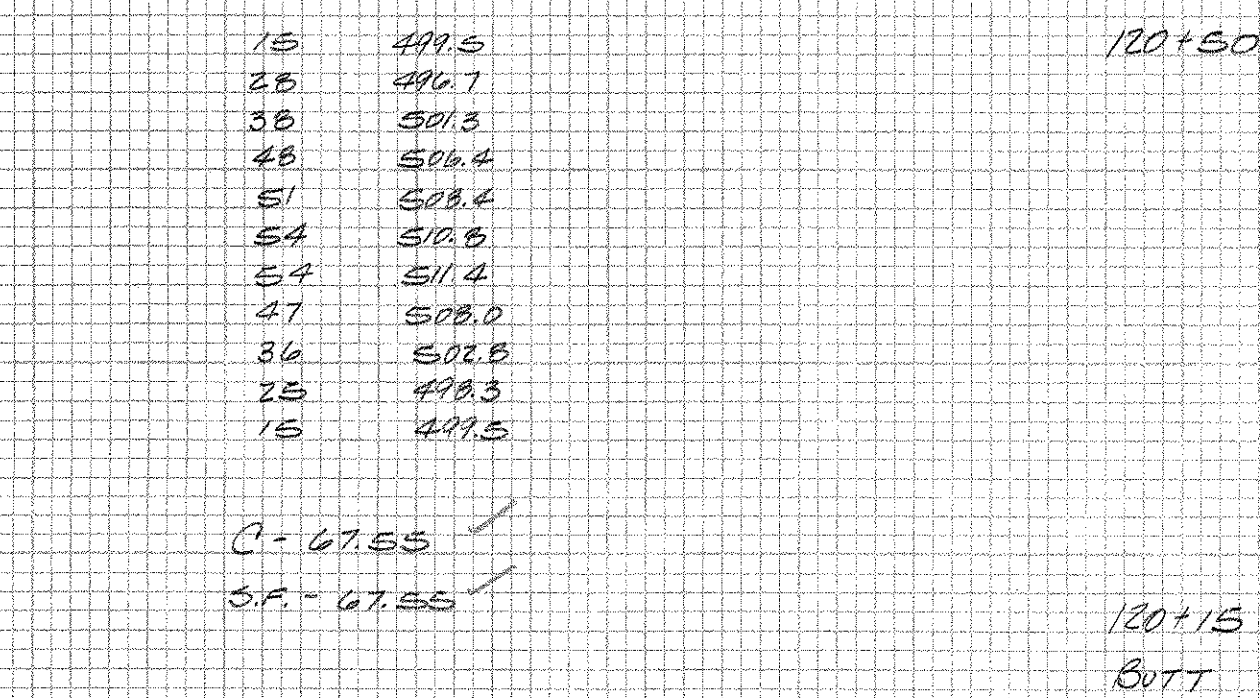 15 499.5 120+50
28 496.7
38 501.3
48 506.4
51 508.4
54 510.8
54 511.4
47 508.0
36 502.8
25 498.3
15 499.5
C - 67.55 ✓
S.F. - 67.55 ✓
120+15
BUTT